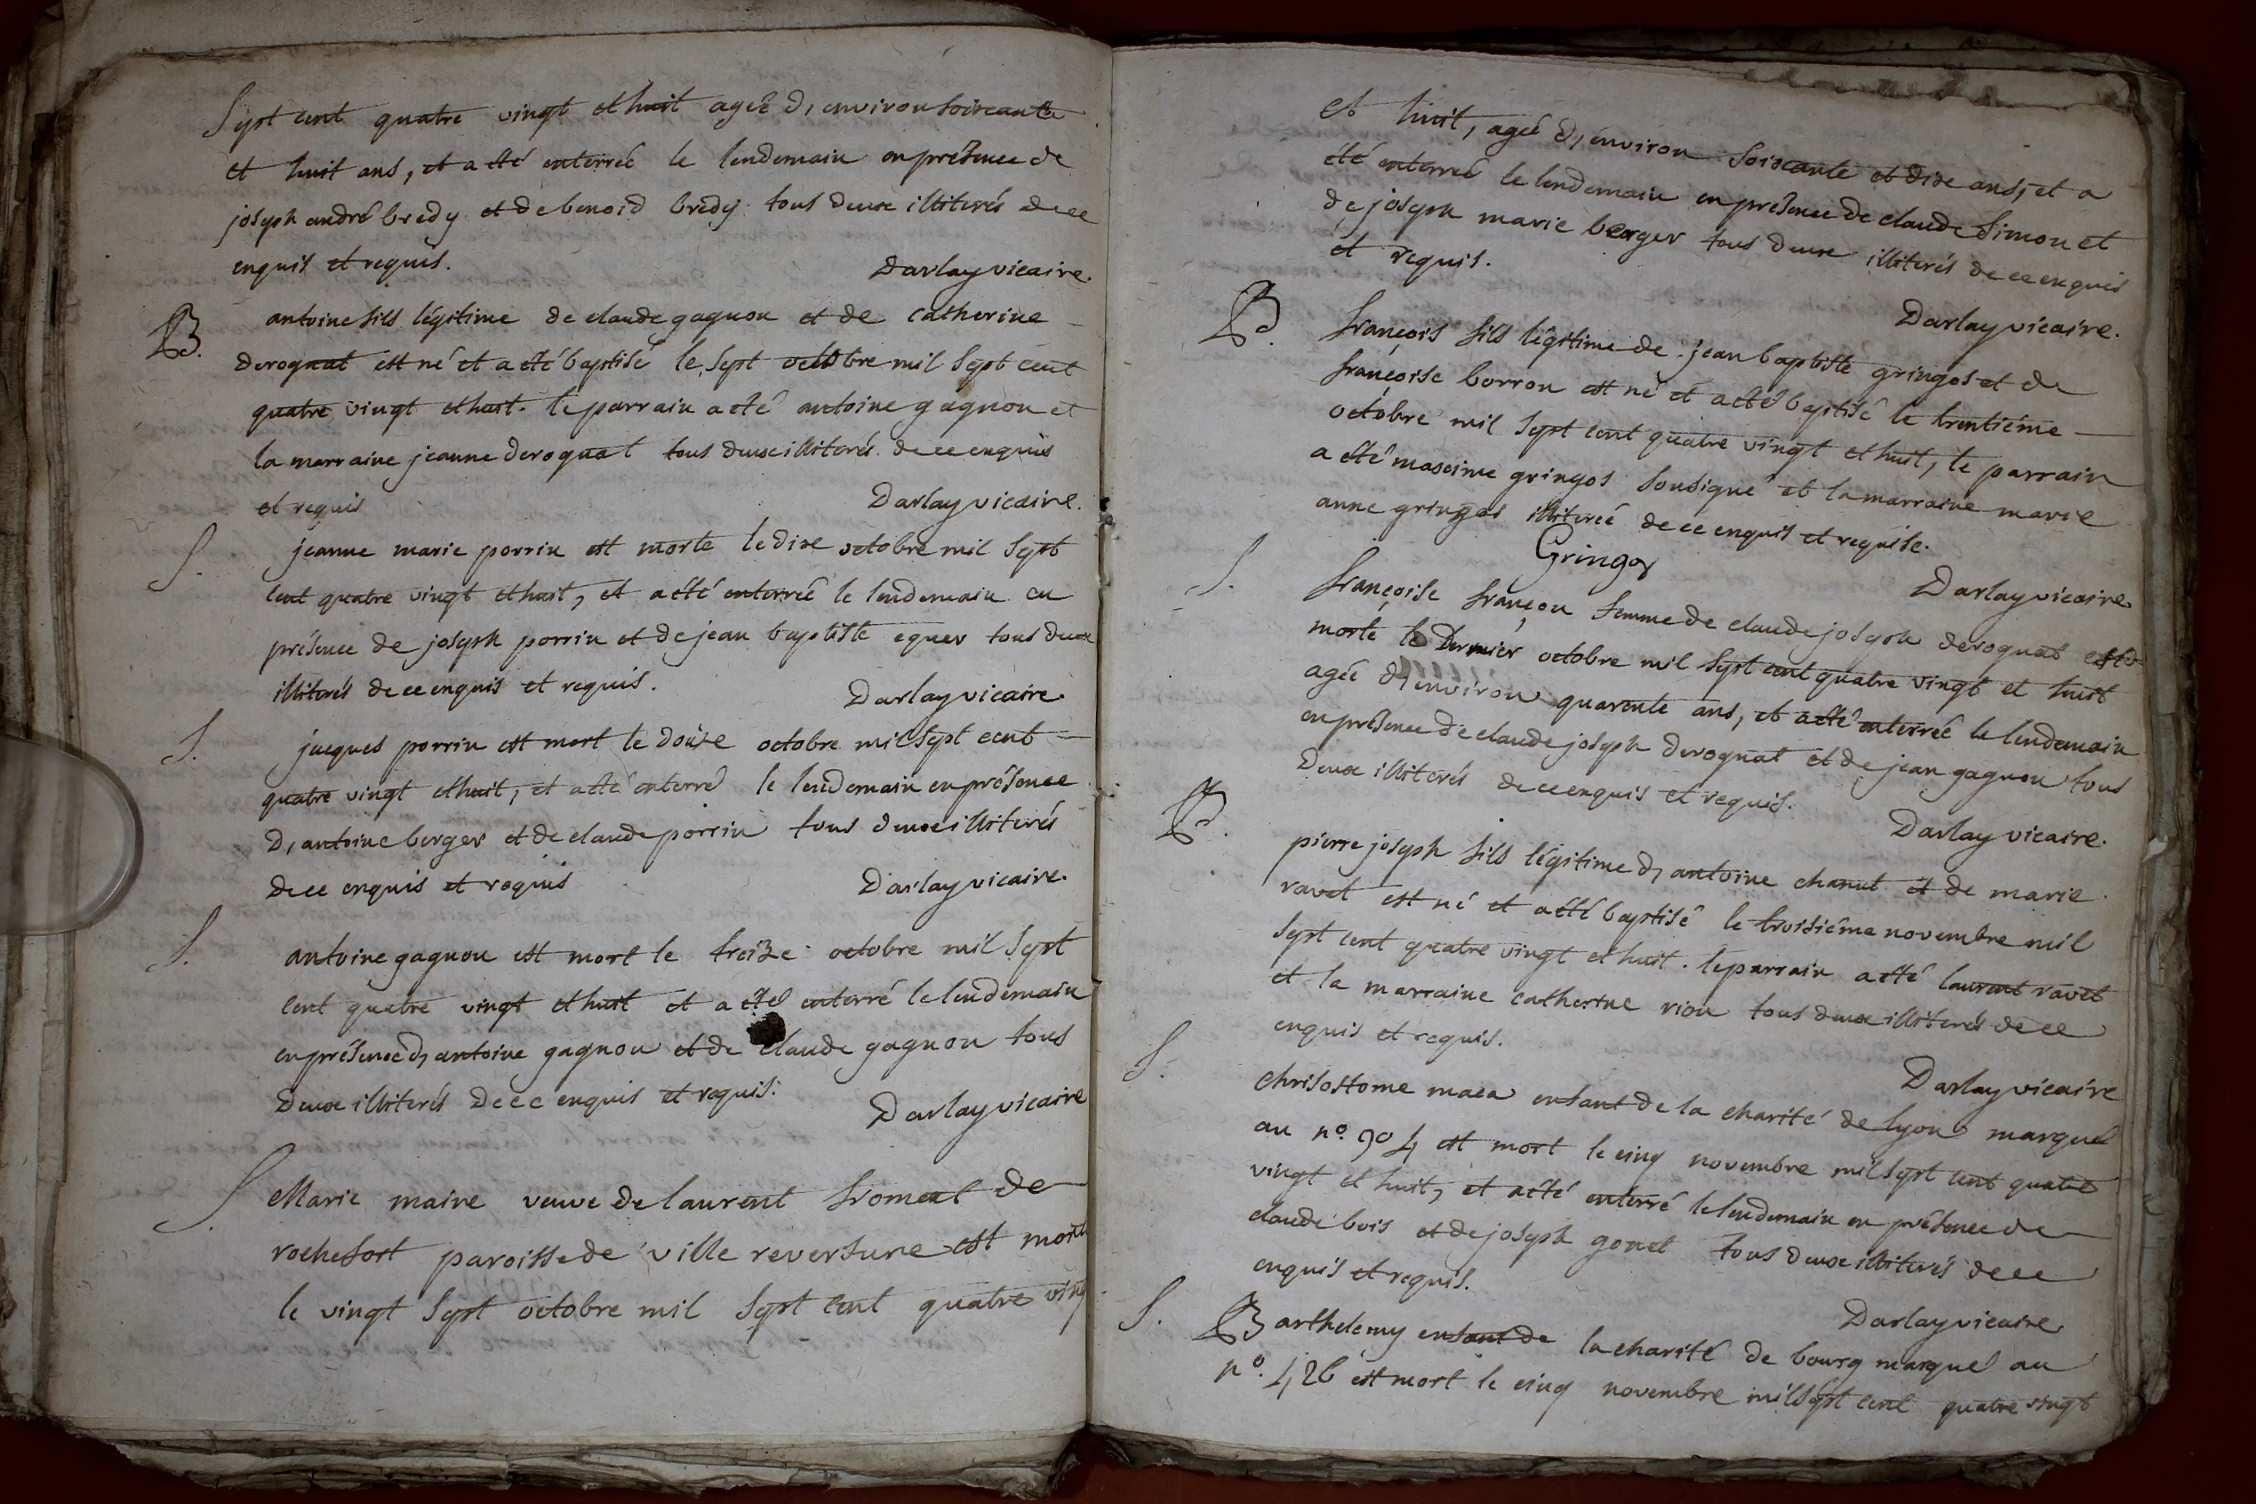 Sept cent quatre vingt et huit agée d, environ soixante
et huit ans, et a eté enterrée le lendemain en présence de
joseph andré bredy et de benoid bredy tous deux illiterés de ce
enquis et requis.
Darlay vicaire.
B. antoine fils légitime de claude gagnon et de catherine
derognat est né et a eté baptisé le sept octobre mil sept cent
quatre vingt et huit. le parrain a eté antoine gagnon et
la marraine jeanne derognat tous deux illiterés de ce enquis
et requis
Darlay vicaire.
S. jeanne marie porrin est morte le dixe octobre mil sept
cent quatre vingt et huit, et a eté enterrée le lendemain en
présence de joseph porrin et de jean baptiste eguer tous deux
illiterés de ce enquis et requis.
Darlay vicaire
S. jacques porrin est mort le douze octobre mil sept cent
quatre vingt et huit, et a eté enterré le lendemain en présence
d, antoine berger et de claude porrin tous deux illiterés
de ce enquis et requis
Darlay vicaire.
S. antoine gagnon est mort le treize octobre mil sept
cent quatre vingt et huit et a eté enterré le lendemain
en présence d, antoine gagnon et de claude gagnon tous
deux illiterés de ce enquis et requis.
Darlay vicaire
S. Marie maire veuve de laurent froment de
rochefort paroisse de ville reversure est morte
le vingt sept octobre mil sept cent quatre vingt
et huit, agée d, environ soixante et dixe ans, et a
été enterrée le lendemain en présence de claude simon et
de joseph marie berger tous deux illiterés de ce enquis
et requis.
Darlay vicaire.
B. françois fils légitime de jean baptiste gringos et de
françoise borron est né et a eté baptisé le trentiéme
octobre mil sept cent quatre vingt et huit, le parrain
a eté maxime gringos sousigné et la marraine marie
anne gringos illiterée de ce enquis et requise.
Gringos
Darlay vicaire
S. françoise françon femme de claude joseph derognat est
morte le dernier octobre mil sept cent quatre vingt et huit
agée d, environ quarente ans, et a eté enterrée le lendemain
en présence de claude joseph derognat et de jean gagnon tous
deux illiterés de ce enquis et requis.
Darlay vicaire.
B. pierre joseph fils légitime d, antoine chanut et de marie
ravet est né et a eté baptisé le troisiéme novembre mil
sept cent quatre vingt et huit. le parrain a eté laurent ravet
et la marraine catherine riou tous deux illiterés de ce
enquis et requis.
Darlay vicaire
S. chrisostome maca enfant de la charité de lyon marqué
au n°. 904 est mort le cinq novembre mil sept cent quatre
vingt et huit, et a eté enterré le lendemain en présence de
claude bois et de joseph gonet tous deux illiterés de ce
enquis et requis.
Darlay vicaire
S. Barthelemy enfant de la charité de bourg marqué au
n°. 426 est mort le cinq novembre mil sept cent quatre vingt